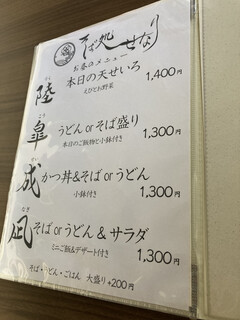 そば処 せなり
お昼のメニュー
陸 りく
本日の天せいろ 1,400円
えびとお野菜
皐 こう
うどん or そば盛り 1,300円
本日のご飯物と小鉢付き
成 せい
かつ丼&そば or うどん
小鉢付き 1,300円
凪 なぎ
そば or うどん & サラダ
ミニご飯&デザート付き 1,300円
そば・うどん・ごはん 大盛り +200円